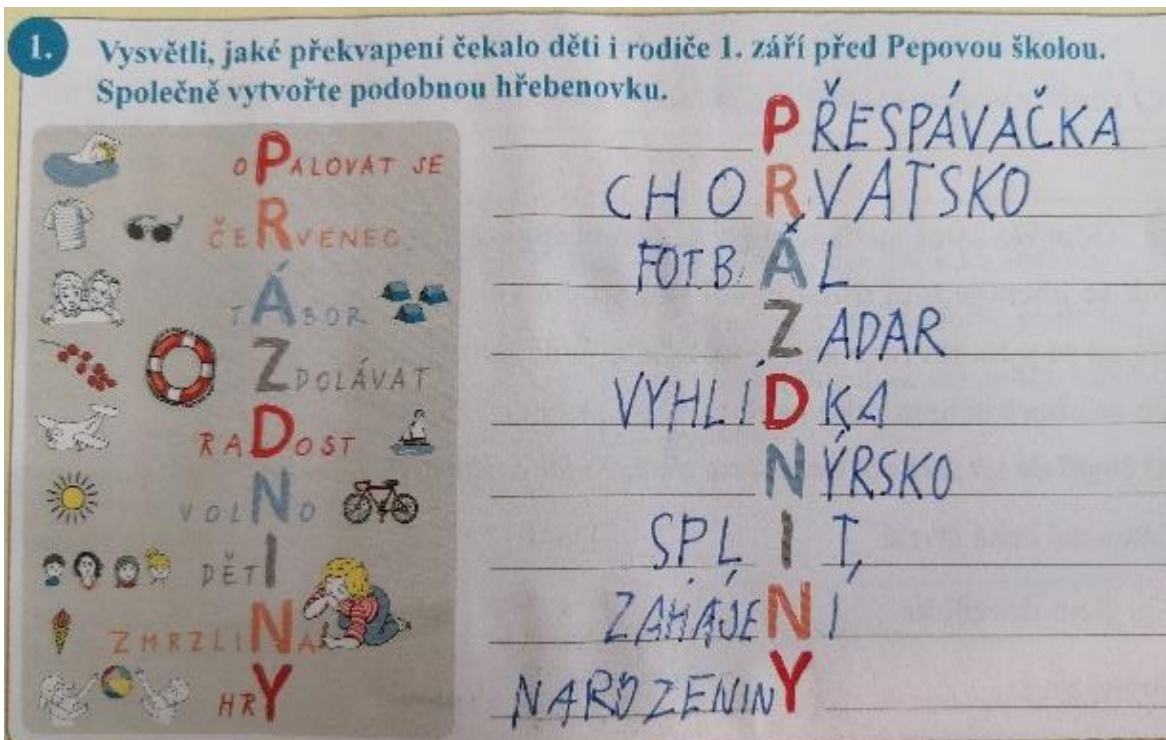 1. Vysvětli, jaké překvapení čekalo děti i rodiče 1. září před Pepovou školou.
Společně vytvořte podobnou hřebenovku.
OPALOVAT SE
ČERVENEC
TÁBOR
ZDOLÁVAT
RADOST
VOLNO
DĚTI
ZMRZLINA
HRY
PŘESPÁVAČKA
CHORVATSKO
FOTBÁL
ZADAR
VYHLÍDKA
NÝRSKO
SPLIT
ZAHÁJENI
NAROZENINY